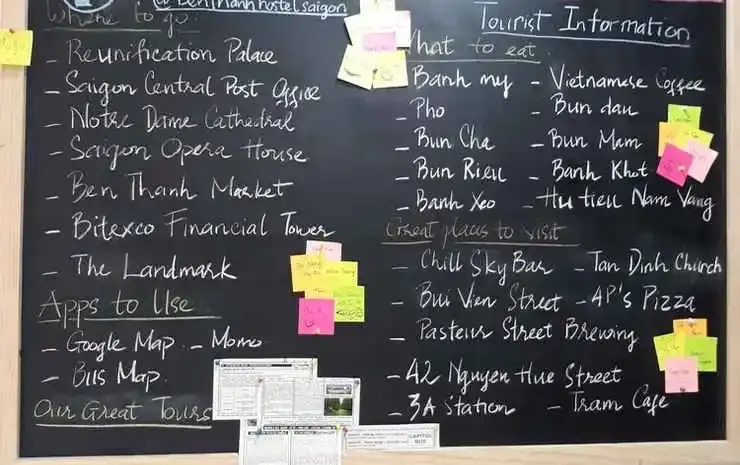 @BenThanhhostelsaigon
Where to go:
- Reunification Palace
- Saigon Central Post Office
- Notre Dame Cathedral
- Saigon Opera House
- Ben Thanh Market
- Bitexco Financial Tower
- The Landmark
Apps to Use
- Google Map - Momo
- Bus Map
Our Great Tours
Tourist Information
What to eat
- Banh my - Vietnamese Coffee
- Pho - Bun dau
- Bun Cha - Bun Mam
- Bun Rieu - Banh Khot
- Banh Xeo - Hu tieu Nam Vang
Great places to visit
- Chill Sky Bar - Tan Dinh Church
- Bui Vien Street - 4P's Pizza
- Pasteur Street Brewing
- 42 Nguyen Hue Street
- 3A Station - Tram Cafe